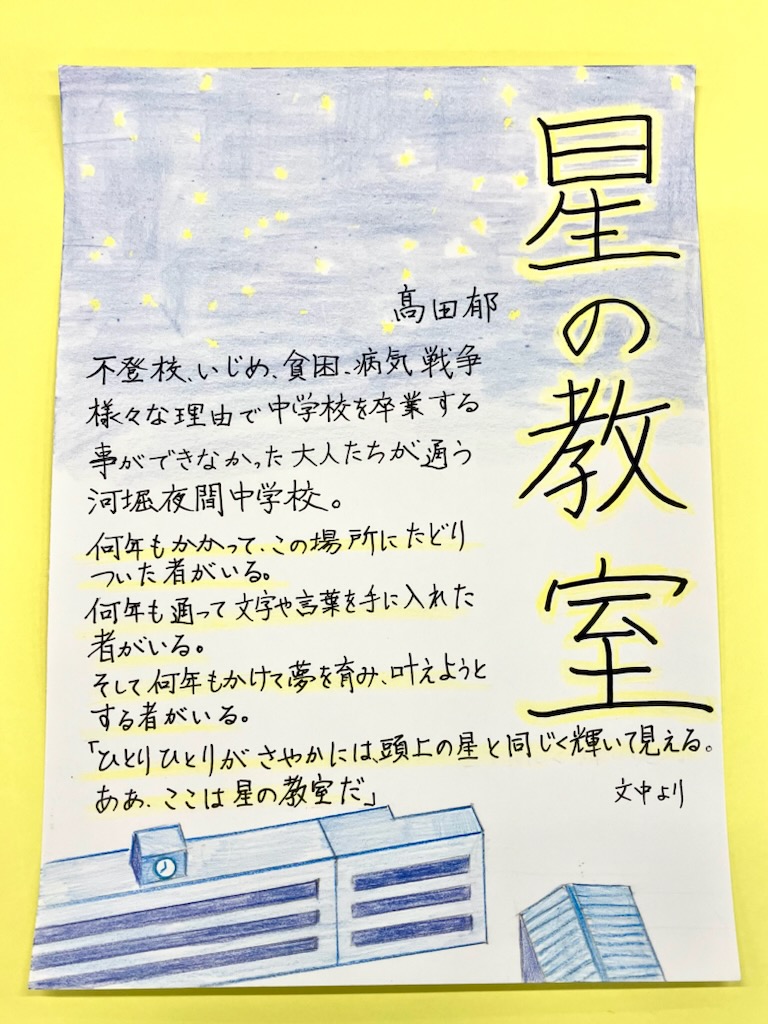 星の教室
髙田郁
不登校、いじめ、貧困、病気戦争
様々な理由で中学校を卒業する
事ができなかった大人たちが通う
河堀夜間中学校。
何年もかかって、この場所にたどり
ついた者がいる。
何年も通って文字や言葉を手に入れた
者がいる。
そして何年もかけて夢を育み、叶えようと
する者がいる。
「ひとりひとりがさやかには、頭上の星と同じく輝いて見える。
ああ、ここは星の教室だ」
文中より